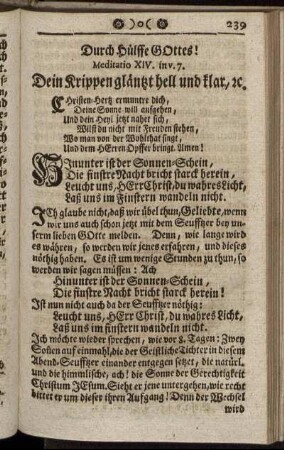 )o( 239
Durch Hülffe GOttes!
Meditatio XIV. in v. 7.
Dein Krippen gläntzt hell und klar, ꝛc.
CHristen-Hertz ermuntre dich,
Deine Sonne will aufgehen,
Und dein Heyl jetzt nahet sich,
Wilst du nicht mit Freuden stehen,
Wo man von der Wohlthat singt,
Und dem HErren Opffer bringt. Amen!
HInunter ist der Sonnen-Schein,
Die finstre Nacht bricht starck herein,
Leucht uns, HErr Christ, du wahres Licht,
Laß uns im Finstern wandeln nicht.
ICh glaube nicht, daß wir übel thun, Geliebte, wenn
wir uns auch schon jetzt mit dem Seufftzer bey un-
serm lieben GOtte melden. Denn, wie lange wird
es währen, so werden wir jenes erfahren, und dieses
nöthig haben. Es ist um wenige Stunden zu thun, so
werden wir sagen müssen: Ach
Hinunter ist der Sonnen-Schein,
Die finstre Nacht bricht starck herein!
Ist nun nicht auch da der Seufftzer nöthig:
Leucht uns, HErr Christ, du wahres Licht,
Laß uns im finstern wandeln nicht.
Ich möchte wieder sprechen, wie vor 8. Tagen: Zwey
Sonnen auf einmahl, die der Geistliche Tichter in diesem
Abend-Seufftzer einander entgegen setzet, die natürl.
und die himmlische, ach! die Sonne der Gerechtigkeit
Christum JEsum. Sieht er jene untergehen, wie recht
bittet er um dieser ihren Aufgang! Denn der Wechsel
wird